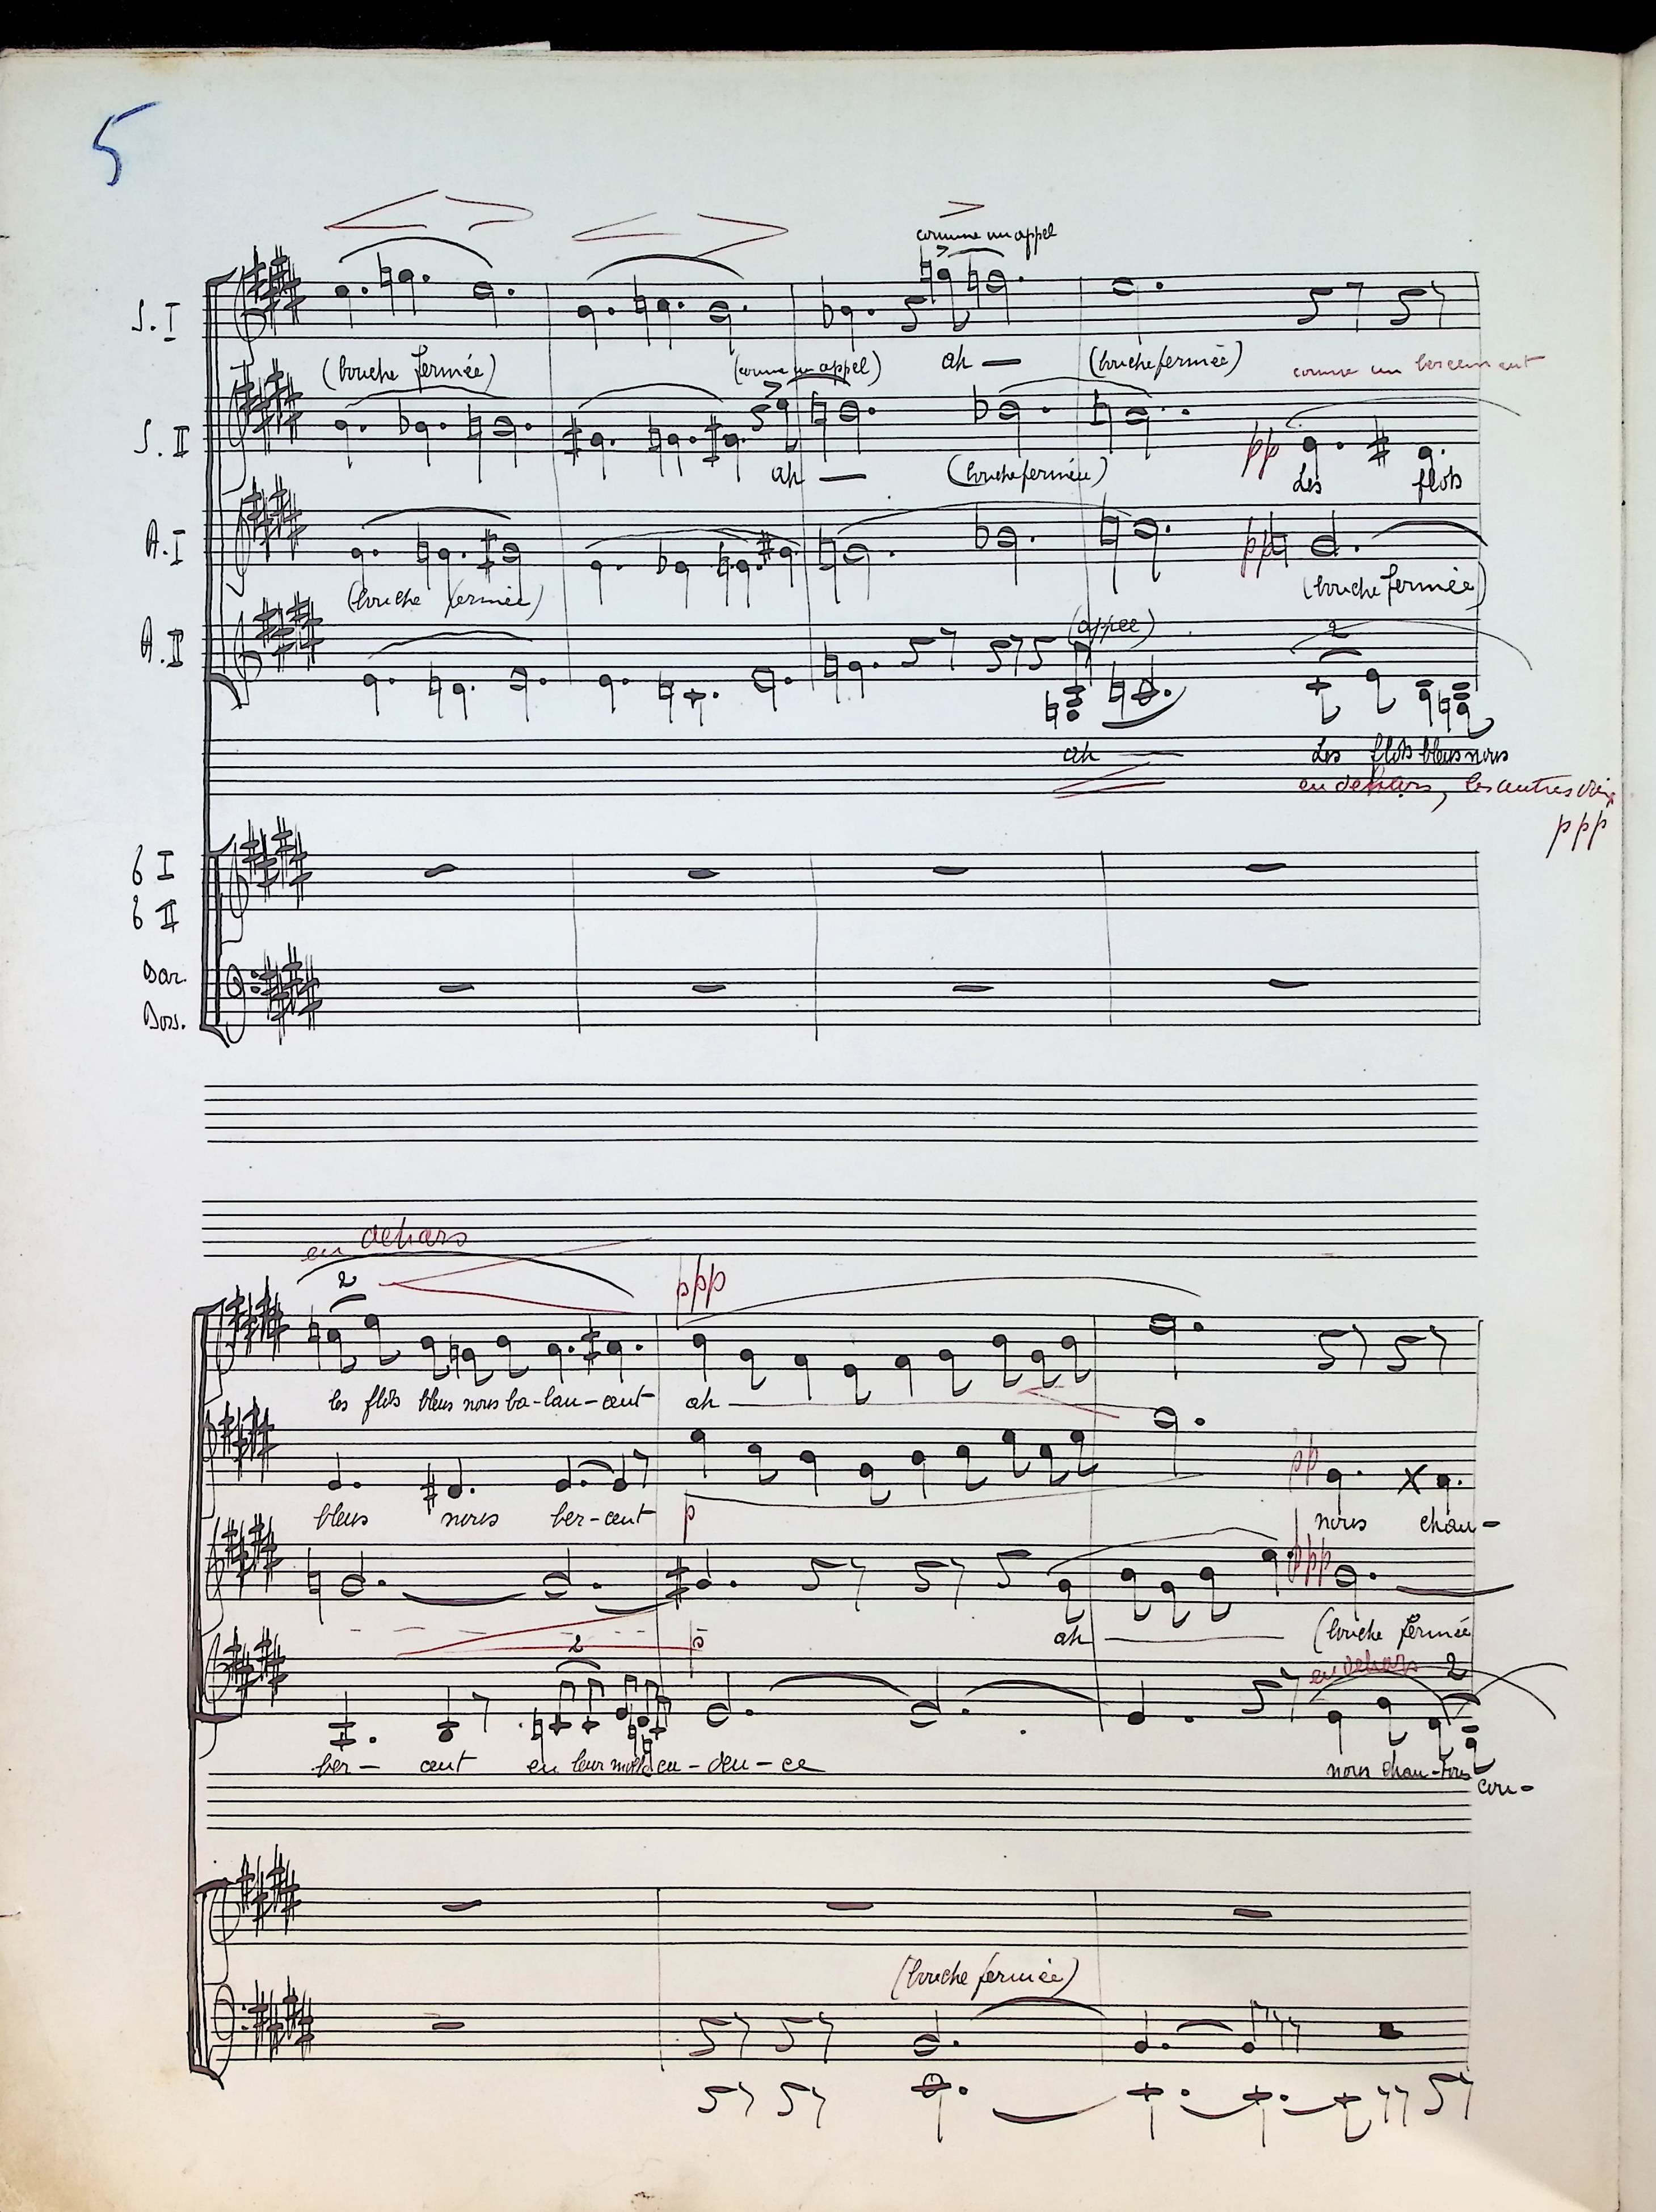 5
comme un appel
S. I
(bouche fermée) (comme un appel) ah — (bouche fermée) comme un bercement
S. II
ah — (bouche fermée) pp Les flots
A. I
pp
(bouche fermée) (bouche fermée)
A. II
2
ah Les flots bleus nous
en dehors, les autres voix
ppp
6 I
6 II
Bar.
Bass.
en dehors
2
ppp
les flots bleus nous ba-lan-cent ah
pp
bleus nous ber-cent p nous chan-
ppp
ah (bouche fermée
2
en dehors 2
ber- cent en leur ca-den-ce nous chan-tons
con-
(bouche fermée)